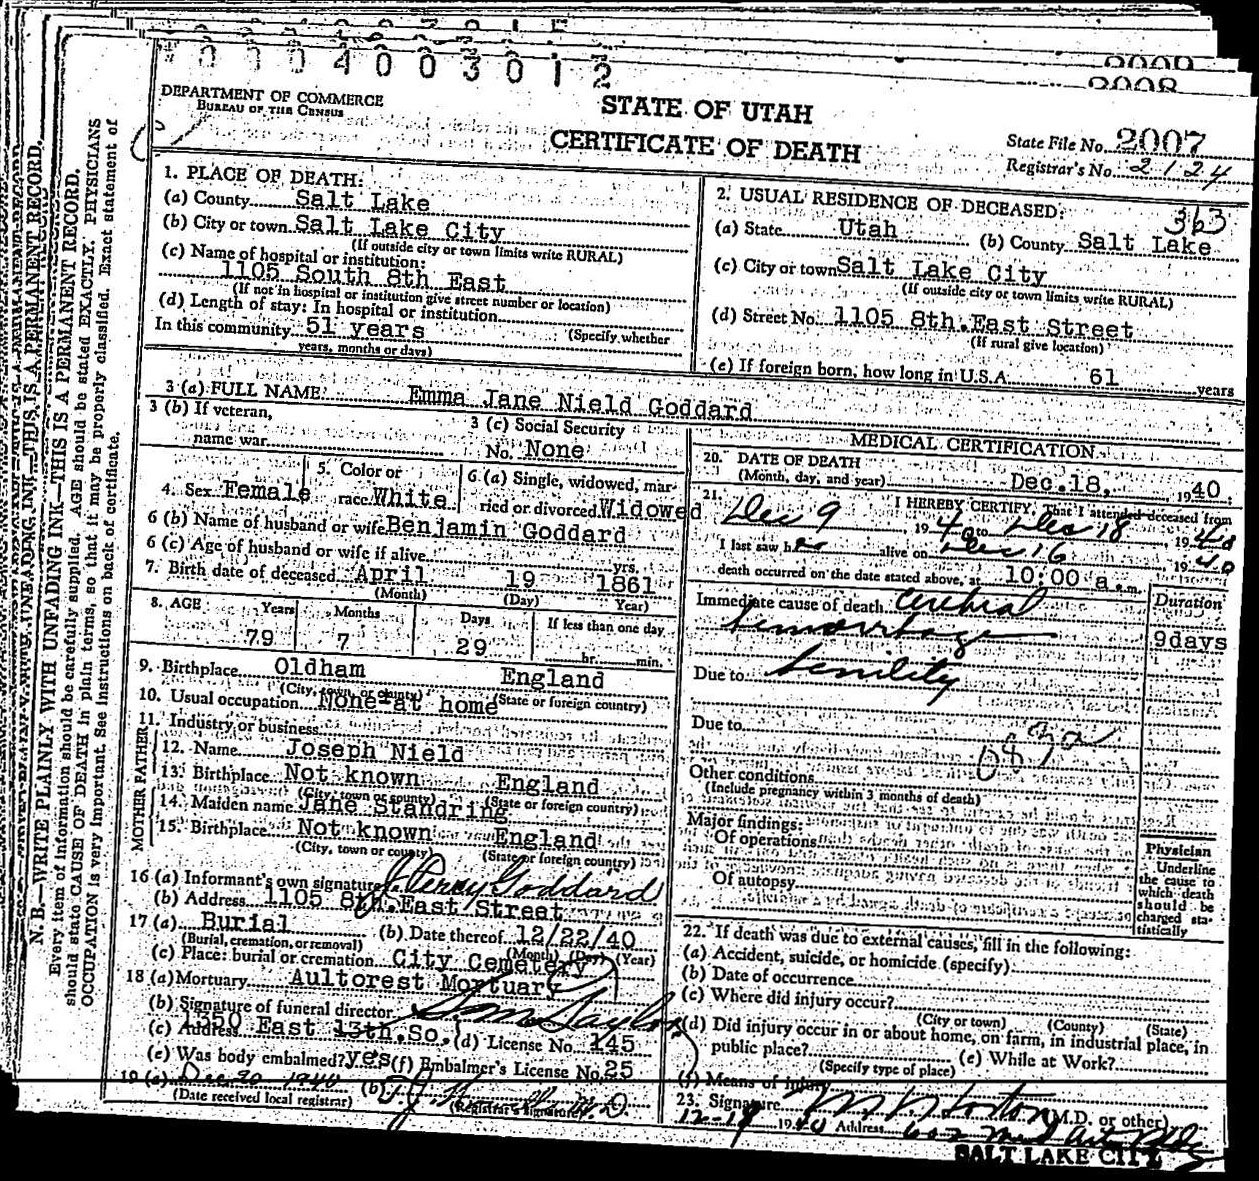 0 0 0 4 0 0 3 0 1 2
2009
2008
DEPARTMENT OF COMMERCE
BUREAU OF THE CENSUS
STATE OF UTAH
CERTIFICATE OF DEATH
State File No. 2007
Registrar's No. 2124
N. B.—WRITE PLAINLY WITH UNFADING INK—THIS IS A PERMANENT RECORD.
Every item of information should be carefully supplied. AGE should be stated EXACTLY. PHYSICIANS
should state CAUSE OF DEATH in plain terms, so that it may be properly classified. Exact statement of
OCCUPATION is very important. See instructions on back of certificate.
1. PLACE OF DEATH:
(a) County Salt Lake
(b) City or town Salt Lake City
(If outside city or town limits write RURAL)
(c) Name of hospital or institution:
1105 South 8th East
(If not in hospital or institution give street number or location)
(d) Length of stay: In hospital or institution
In this community 51 years (Specify whether
years, months or days)
2. USUAL RESIDENCE OF DECEASED: 363
(a) State Utah (b) County Salt Lake
(c) City or town Salt Lake City
(If outside city or town limits write RURAL)
(d) Street No. 1105 8th.East Street
(If rural give location)
(e) If foreign born, how long in U.S.A. 61 years
3 (a) FULL NAME Emma Jane Nield Goddard
3 (b) If veteran,
name war
3 (c) Social Security
No. None
4. Sex Female
5. Color or
race White
6 (a) Single, widowed, mar-
ried or divorced Widowed
6 (b) Name of husband or wife Benjamin Goddard
6 (c) Age of husband or wife if alive yrs.
7. Birth date of deceased April 19 1861
(Month) (Day) Year)
8. AGE Years Months Days If less than one day
79 7 29 hr. min.
9. Birthplace Oldham England
(City, town, or county) (State or foreign country)
10. Usual occupation None-at home
11. Industry or business
FATHER
12. Name Joseph Nield
13. Birthplace Not known England
(City, town or county) (State or foreign country)
MOTHER
14. Maiden name Jane Standring
15. Birthplace Not known England
(City, town or county) (State or foreign country)
16 (a) Informant's own signature J. Percy Goddard
(b) Address 1105 8th.East Street
17 (a) Burial (b) Date thereof 12/22/40
(Burial, cremation, or removal) (Month) (Day) (Year)
(c) Place: burial or cremation City Cemetery
18 (a) Mortuary Aultorest Mortuary
(b) Signature of funeral director Taylor
(c) Address 1350 East 13th.So. (d) License No. 145
(e) Was body embalmed? yes (f) Embalmer's License No. 25
19 (a) Dec. 20 1940 (b) M.D.
(Date received local registrar) (Registrar's signature)
MEDICAL CERTIFICATION
20. DATE OF DEATH
(Month, day, and year) Dec.18, 1940
21. I HEREBY CERTIFY, That I attended deceased from
Dec 9 1940 to Dec 18, 1940
I last saw her alive on Dec 16, 1940
death occurred on the date stated above, at 10:00 a.m.
Immediate cause of death cerebral Duration
hemorrhage 9days
Due to senility
Due to
Other conditions
(Include pregnancy within 3 months of death)
Major findings:
Of operations
Of autopsy
Physician
Underline
the cause to
which death
should be
charged sta-
tistically
22. If death was due to external causes, fill in the following:
(a) Accident, suicide, or homicide (specify)
(b) Date of occurrence
(c) Where did injury occur?
(City or town) (County) (State)
(d) Did injury occur in or about home, on farm, in industrial place, in
public place? (e) While at Work?
(Specify type of place)
(f) Means of injury
23. Signature (M.D. or other)
12-19 1940 Address 602 Med Arts Bldg
SALT LAKE CITY